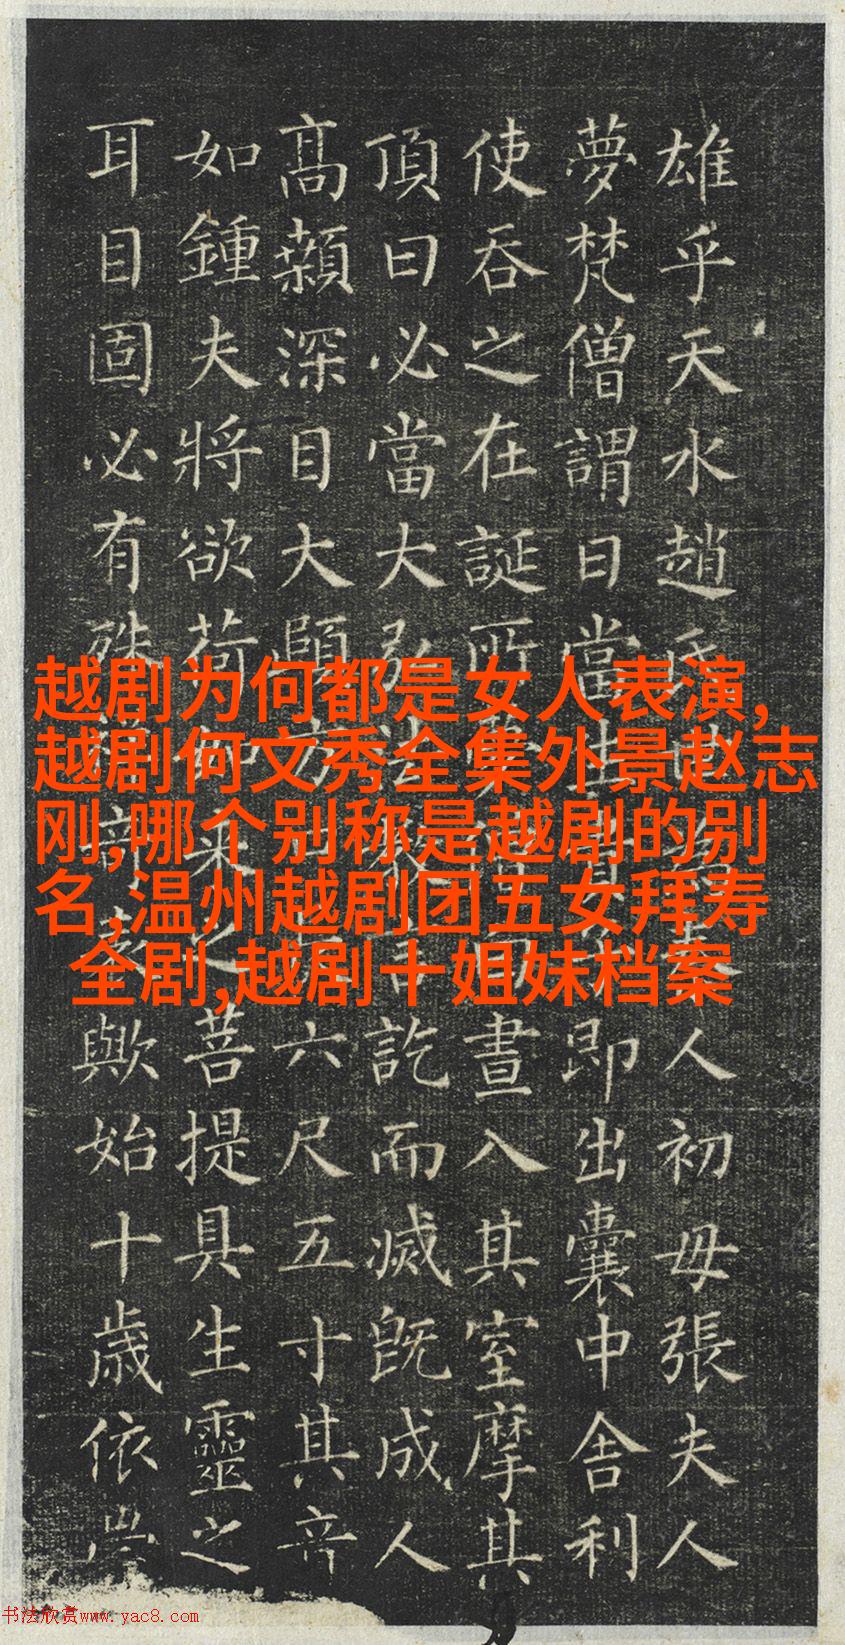 雄乎天水趙氏人初母張夫人
夢梵僧謂曰當即出囊中舍利
使吞之在誕所晝入其室摩其
頂曰必當大弘法教言訖而滅既成人
高顙深目大頤方六尺五寸其音
如鍾夫將欲荷如來之菩提具生靈之
耳目固必有殊歟始十歲依
越剧为何都是女人表演,
越剧何文秀全集外景赵志
刚,哪个别称是越剧的别
名,温州越剧团五女拜寿
全剧,越剧十姐妹档案
书法欣赏www.yac8.com